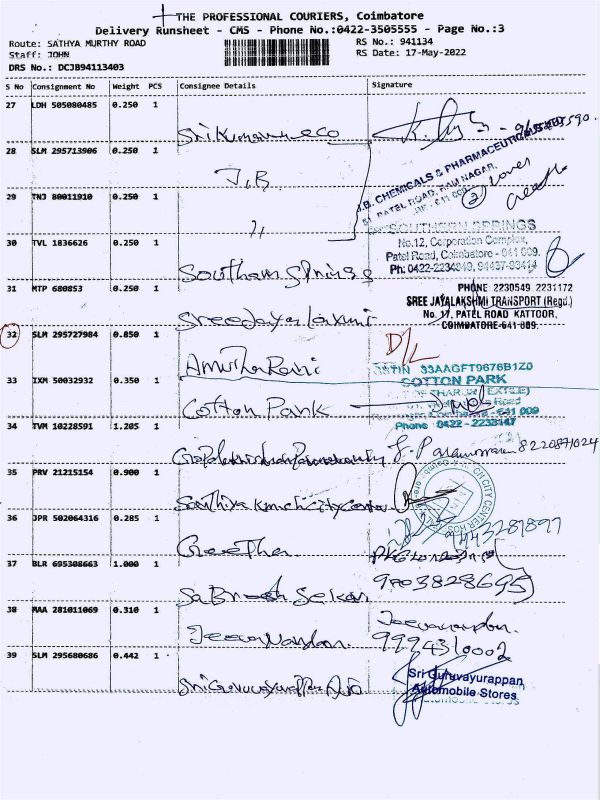 THE PROFESSIONAL COURIERS, Coimbatore
Delivery Runsheet - CMS - Phone No.:0422-3505555 - Page No.:3
Route: SATHYA MURTHY ROAD
Staff: JOHN
DRS No.: DCJB94113403
RS No.: 941134
RS Date: 17-May-2022
S No Consignment No Weight PCS Consignee Details Signature
27 LDH 505080485 0.250 1
28 SLM 295713906 0.250 1
J.B
J.B. CHEMICALS & PHARMACEUTICALS
PATEL ROAD, RAM NAGAR,
2 covers
Geetha
29 TNJ 80011910 0.250 1
"
30 TVL 1836626 0.250 1
Southern Springs
SOUTHERN SPRINGS
No.12, Corporation Complex,
Patel Road, Coimbatore - 641 009.
Ph: 0422-2234949, 94437-93414
31 MTP 680853 0.250 1
Sree Jaya laxmi
PHONE 2230549 2231172
SREE JAYALAKSHMI TRANSPORT (Regd.)
No. 17, PATEL ROAD KATTOOR,
COIMBATORE-641 009.
32 SLM 295727984 0.850 1
Amutha Rani
D/L
33 IXM 50032932 0.350 1
Cotton Park
GSTIN 33AAGFT9676B1Z0
COTTON PARK
641 009
Phone : 0422 - 2233147
34 TVM 10228591 1.205 1
8220871024
35 PRV 21215154 0.900 1
36 JPR 502064316 0.285 1
Geetha
9443281897
37 BLR 695308663 1.000 1
9703828695
38 MAA 281011069 0.310 1
Jeevanandan.
Jeevanandan.
9994310002
39 SLM 295680686 0.442 1
Sri Guruvayurappan
Automobile Stores